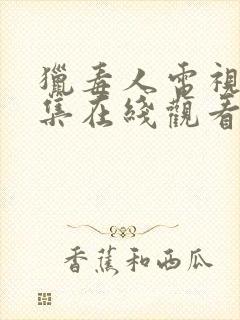 獵毒人電視
集在綫觀看
香蕉和西瓜